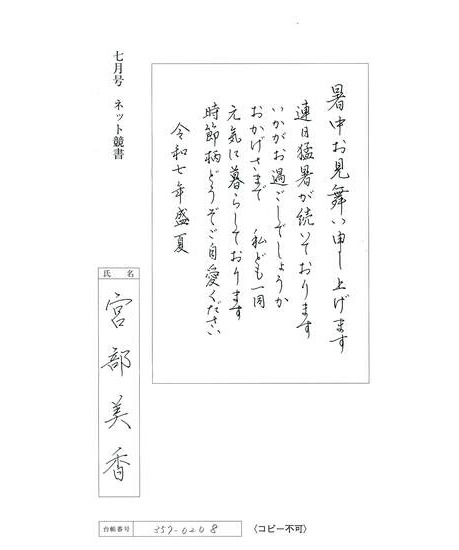 七月号 ネット競書
暑中お見舞い申し上げます
連日猛暑が続いております
いかがお過ごしでしょうか
おかげさまで 私ども一同
元気に暮らしております
時節柄どうぞご自愛ください
令和七年盛夏
氏名
宮部美香
台帳番号
357-0208
〈コピー不可〉